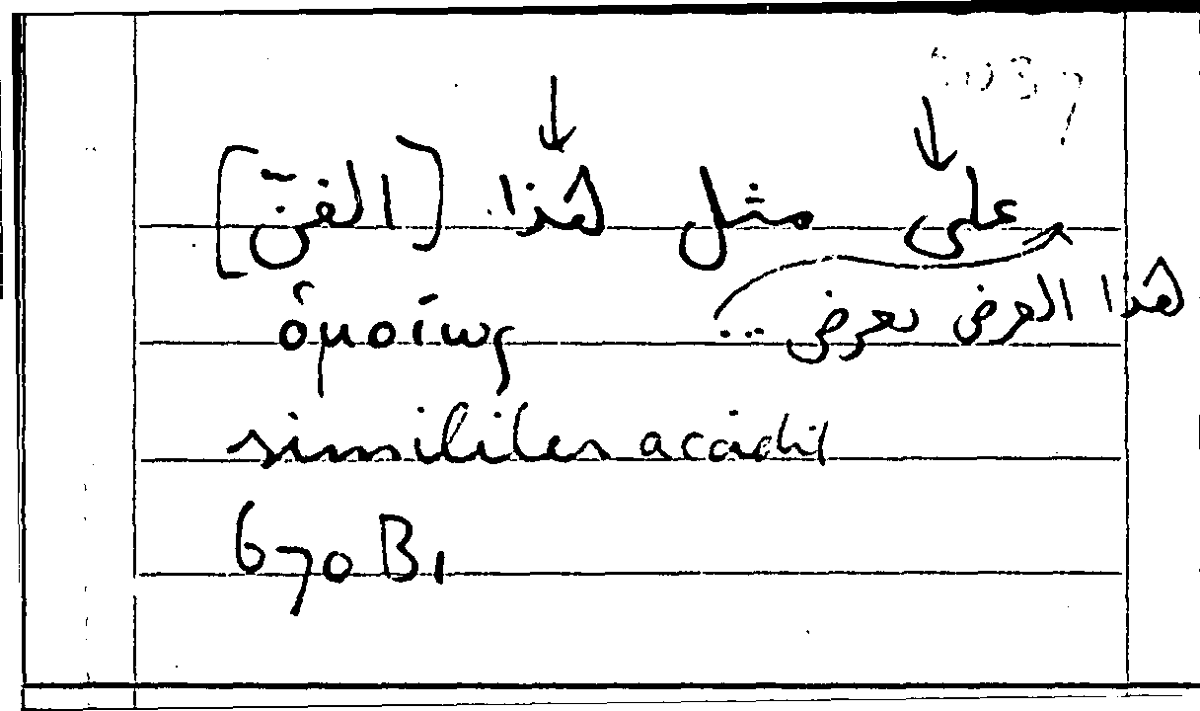 على مثل هذا [الفنّ]
هذا العرض يعرض ...
ὁμοίως
similiter accidit
670 B1